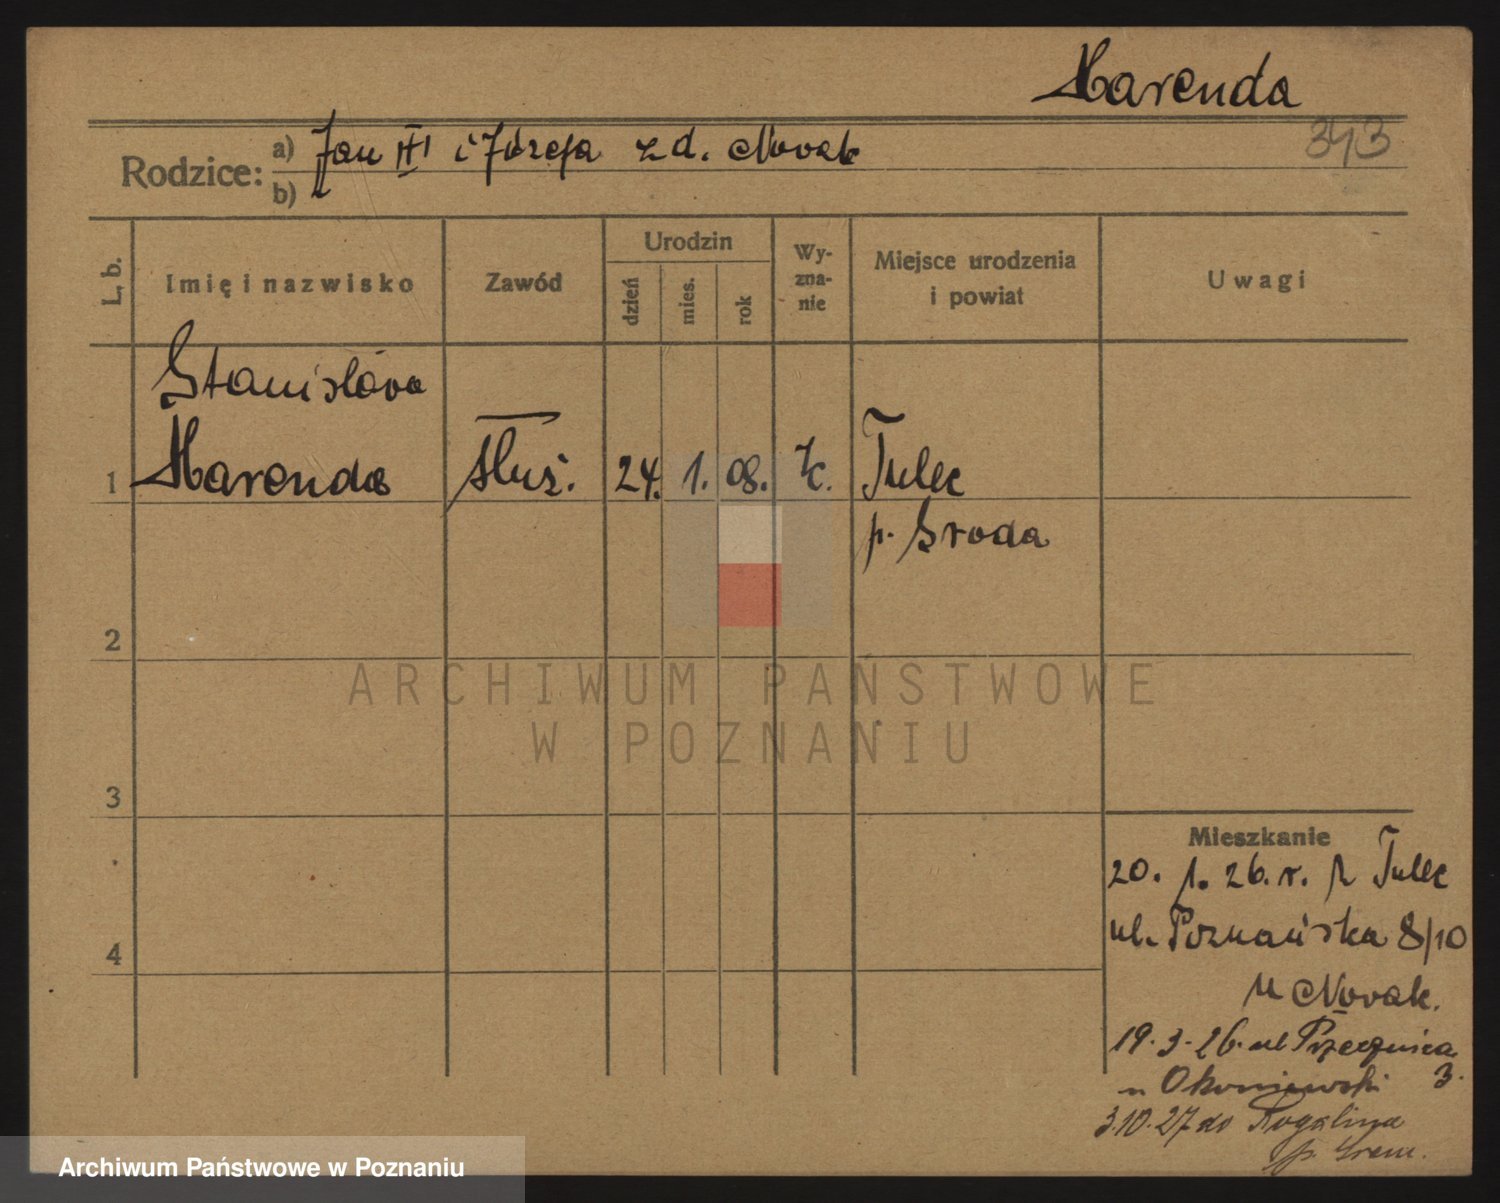 Marenda
343
Rodzice:
a) Jan III i Józefa z d. Novak
b)
L. b.
Imię i nazwisko
Zawód
Urodzin
dzień
mies.
rok
Wy-
zna-
nie
Miejsce urodzenia
i powiat
Uwagi
Stanisłava
1 Marenda służ. 24. 1. 08. k. Tulce
p. Środa
2
ARCHIWUM PAŃSTWOWE
W POZNANIU
3
4
Mieszkanie
20. 1. 26. r. z Tulec
ul. Poznańska 8/10
u Novak.
19.3.26. ul Przecznica
3.
u Okoniewski
3.10.27 do Rogalina
p. Śrem.
Archiwum Państwowe w Poznaniu